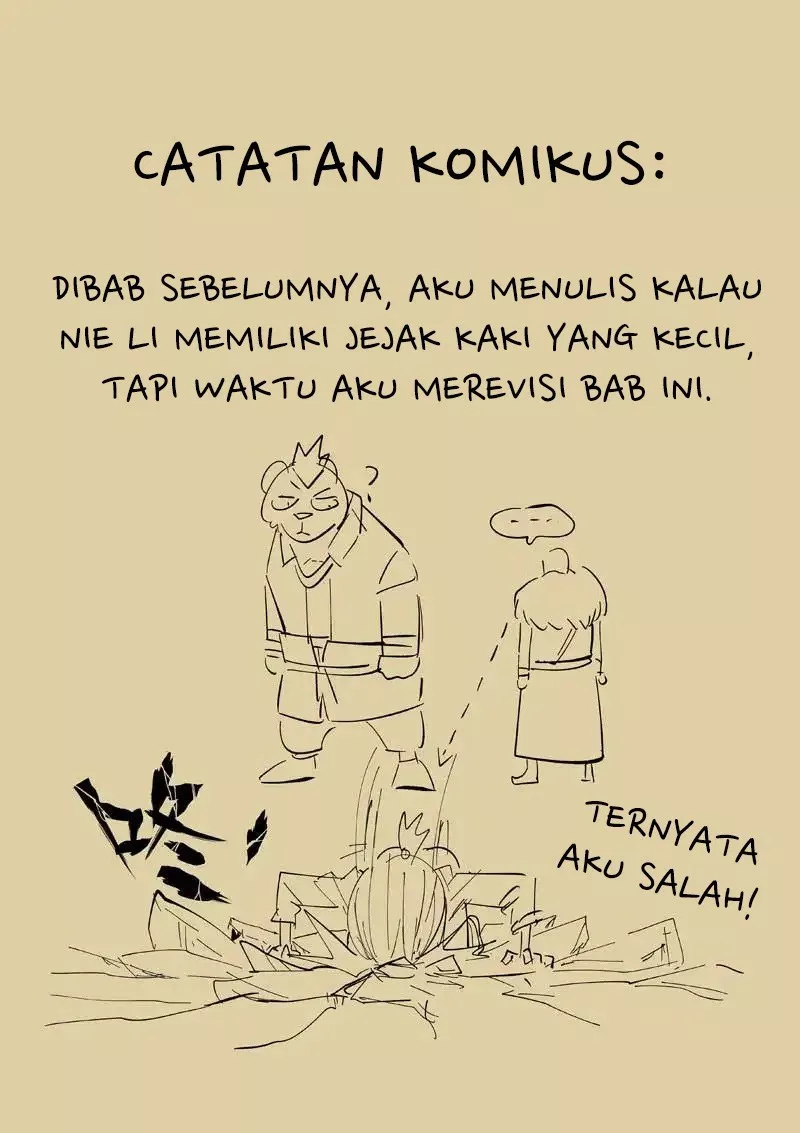 CATATAN KOMIKUS:
DIBAB SEBELUMNYA, AKU MENULIS KALAU
NIE LI MEMILIKI JEJAK KAKI YANG KECIL,
TAPI WAKTU AKU MEREVISI BAB INI.
?
---
咚
TERNYATA
AKU SALAH!